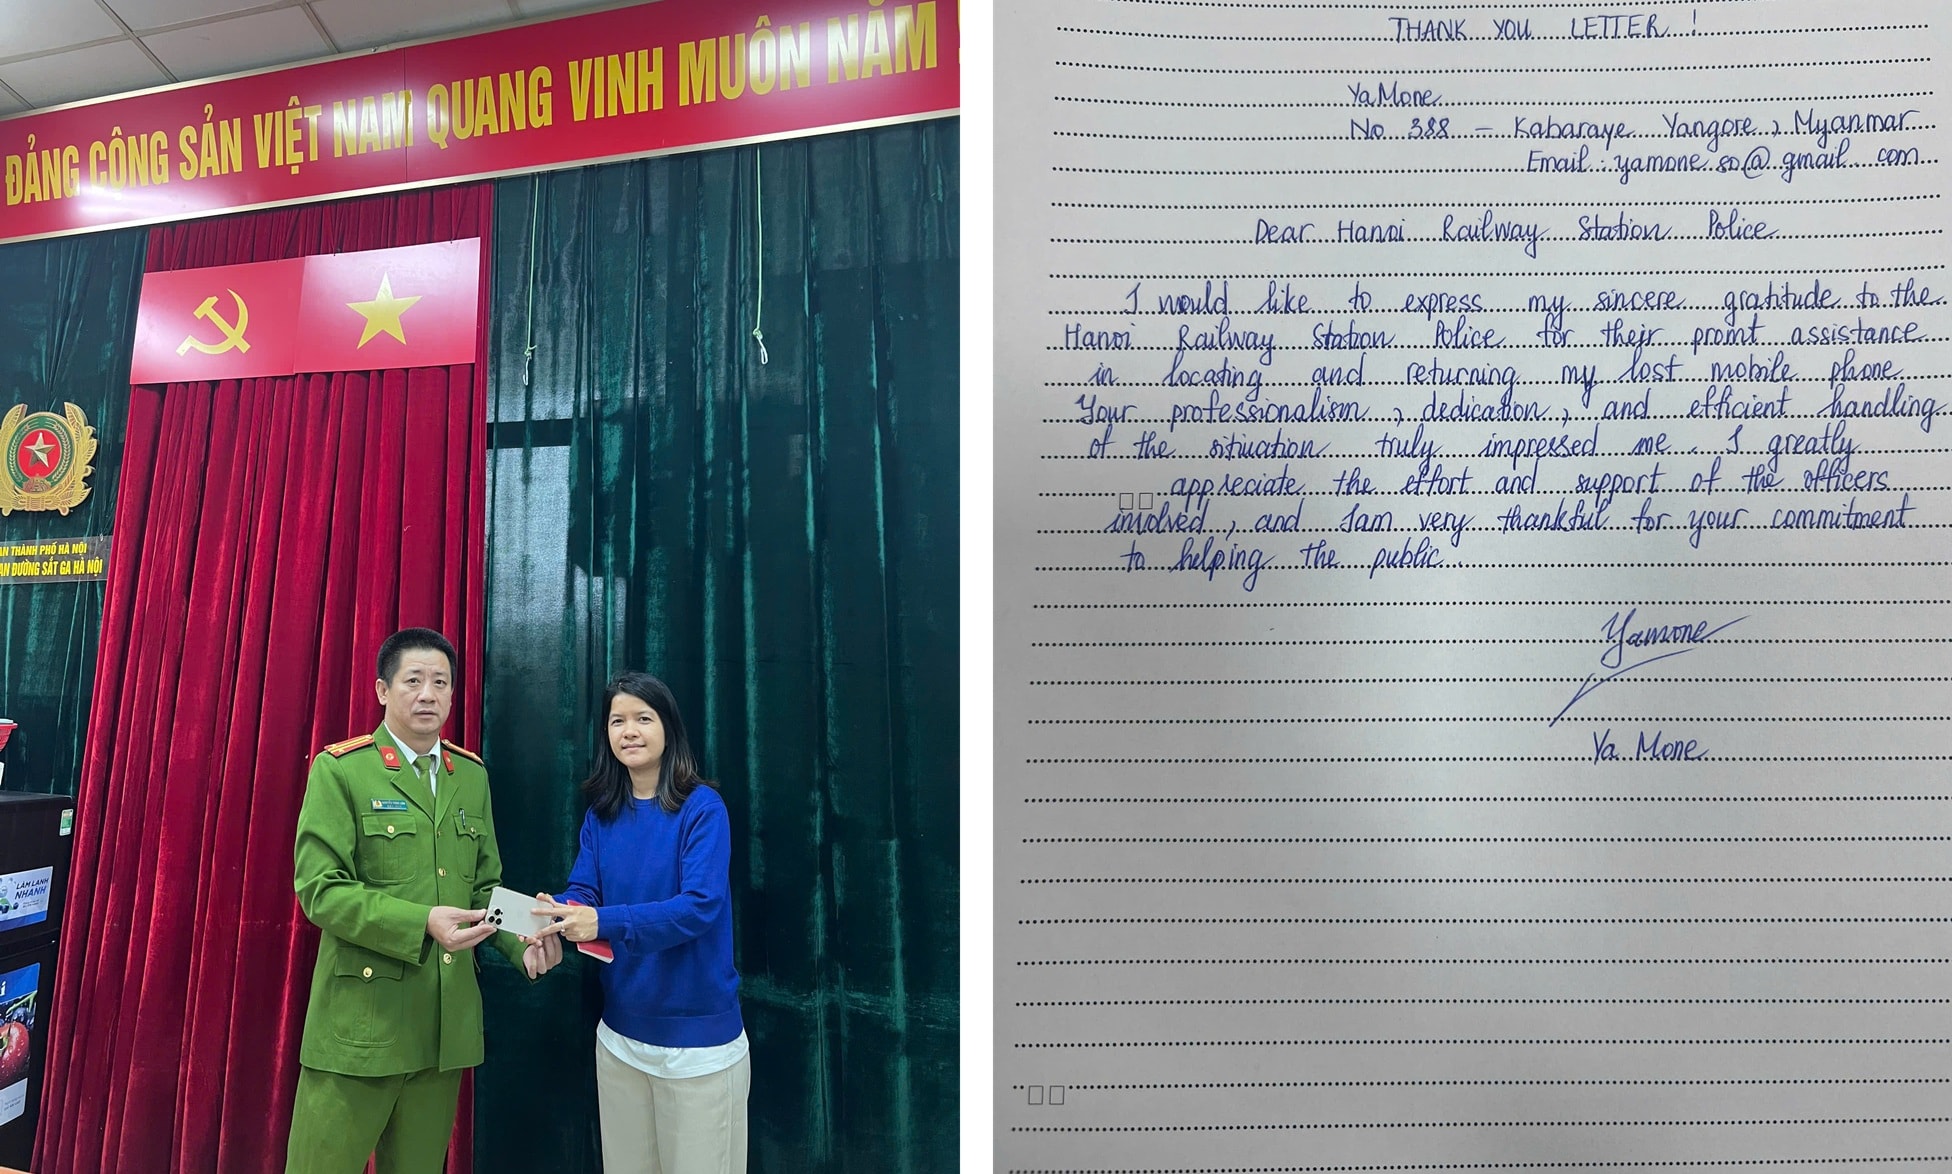 ĐẢNG CỘNG SẢN VIỆT NAM QUANG VINH MUÔN NĂM
AN THÀNH PHỐ HÀ NỘI
AN ĐƯỜNG SẮT GA HÀ NỘI
LÀM LẠNH
NHANH
THANK YOU LETTER !
YaMone
No 388 - Kabaraye Yangore, Myanmar
Email : yamone.80@gmail.com
Dear Hanoi Railway Station Police
I would like to express my sincere gratitude to the
Hanoi Railway Station Police for their promt assistance
in locating and returning my lost mobile phone
Your professionalism, dedication, and efficient handling
of the sitiuation truly impressed me. I greatly
appreciate the effort and support of the officers
involved, and I am very thankful for your commitment
to helping the public.
Yamone
Ya Mone